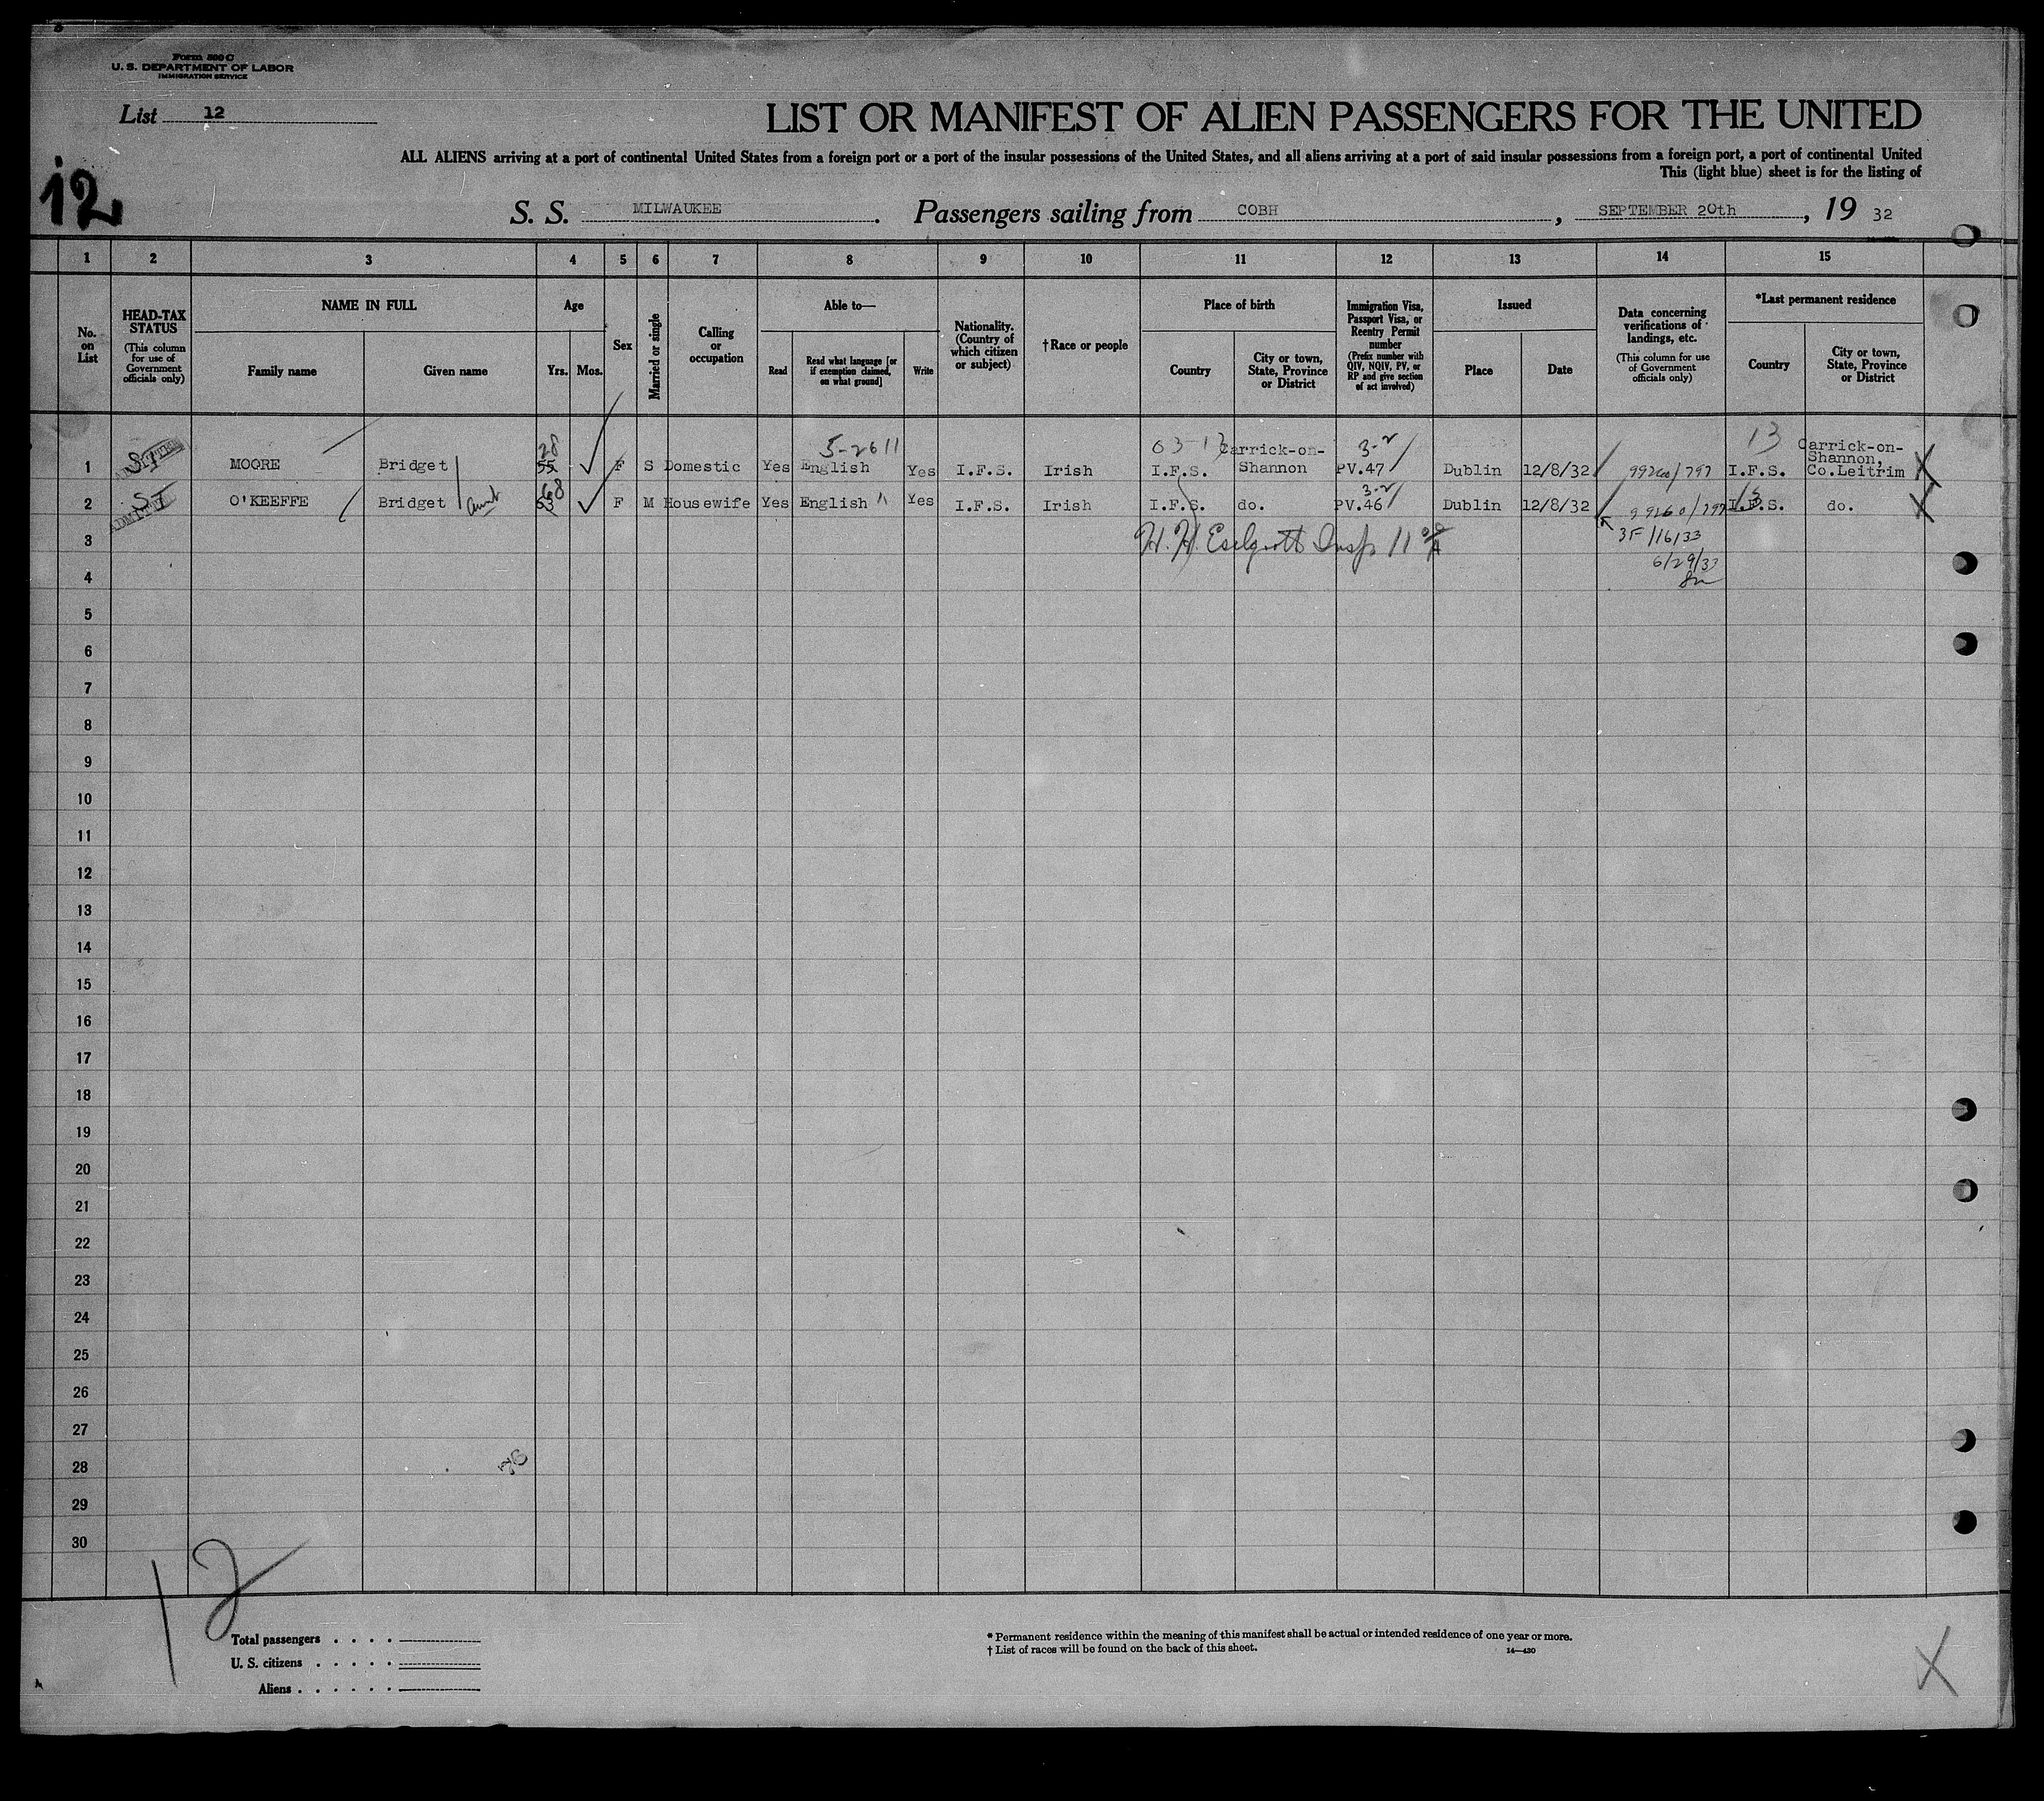 Form 500 C
U. S. DEPARTMENT OF LABOR
IMMIGRATION SERVICE
List 12
LIST OR MANIFEST OF ALIEN PASSENGERS FOR THE UNITED
ALL ALIENS arriving at a port of continental United States from a foreign port or a port of the insular possessions of the United States, and all aliens arriving at a port of said insular possessions from a foreign port, a port of continental United
This (light blue) sheet is for the listing of
12
S. S. MILWAUKEE . Passengers sailing from COBH , SEPTEMBER 20th , 19 32
1 2 3 4 5 6 7 8 9 10 11 12 13 14 15
No. on List
HEAD-TAX STATUS (This column for use of Government officials only)
NAME IN FULL
Family name Given name
Age
Yrs. Mos.
Sex
Married or single
Calling or occupation
Able to—
Read Read what language [or if exemption claimed, on what ground] Write
Nationality. (Country of which citizen or subject)
†Race or people
Place of birth
Country City or town, State, Province or District
Immigration Visa, Passport Visa, or Reentry Permit number (Prefix number with QIV, NQIV, PV, or RP and give section of act involved)
Issued
Place Date
Data concerning verifications of landings, etc. (This column for use of Government officials only)
*Last permanent residence
Country City or town, State, Province or District
28 5-2611 03-13 Carrick-on- 3-2 13 Carrick-on-
Shannon,
1 SI ADMITTED MOORE Bridget 55 F S Domestic Yes English Yes I.F.S. Irish I.F.S. Shannon PV.47 Dublin 12/8/32 99260/797 I.F.S. Co.Leitrim X
68 3-2 13
2 SI ADMITTED O'KEEFFE Bridget aunt 53 F M Housewife Yes English " Yes I.F.S. Irish I.F.S. do. PV.46 Dublin 12/8/32 99260/797 I.F.S. do. X
3 H. H. Insp 11 3F/16/33
4 6/29/33
5
6
7
8
9
10
11
12
13
14
15
16
17
18
19
20
21
22
23
24
25
26
27
28
29
30
12
Total passengers . . . .
U. S. citizens . . . . .
Aliens . . . . . .
* Permanent residence within the meaning of this manifest shall be actual or intended residence of one year or more.
† List of races will be found on the back of this sheet.
14—430
X